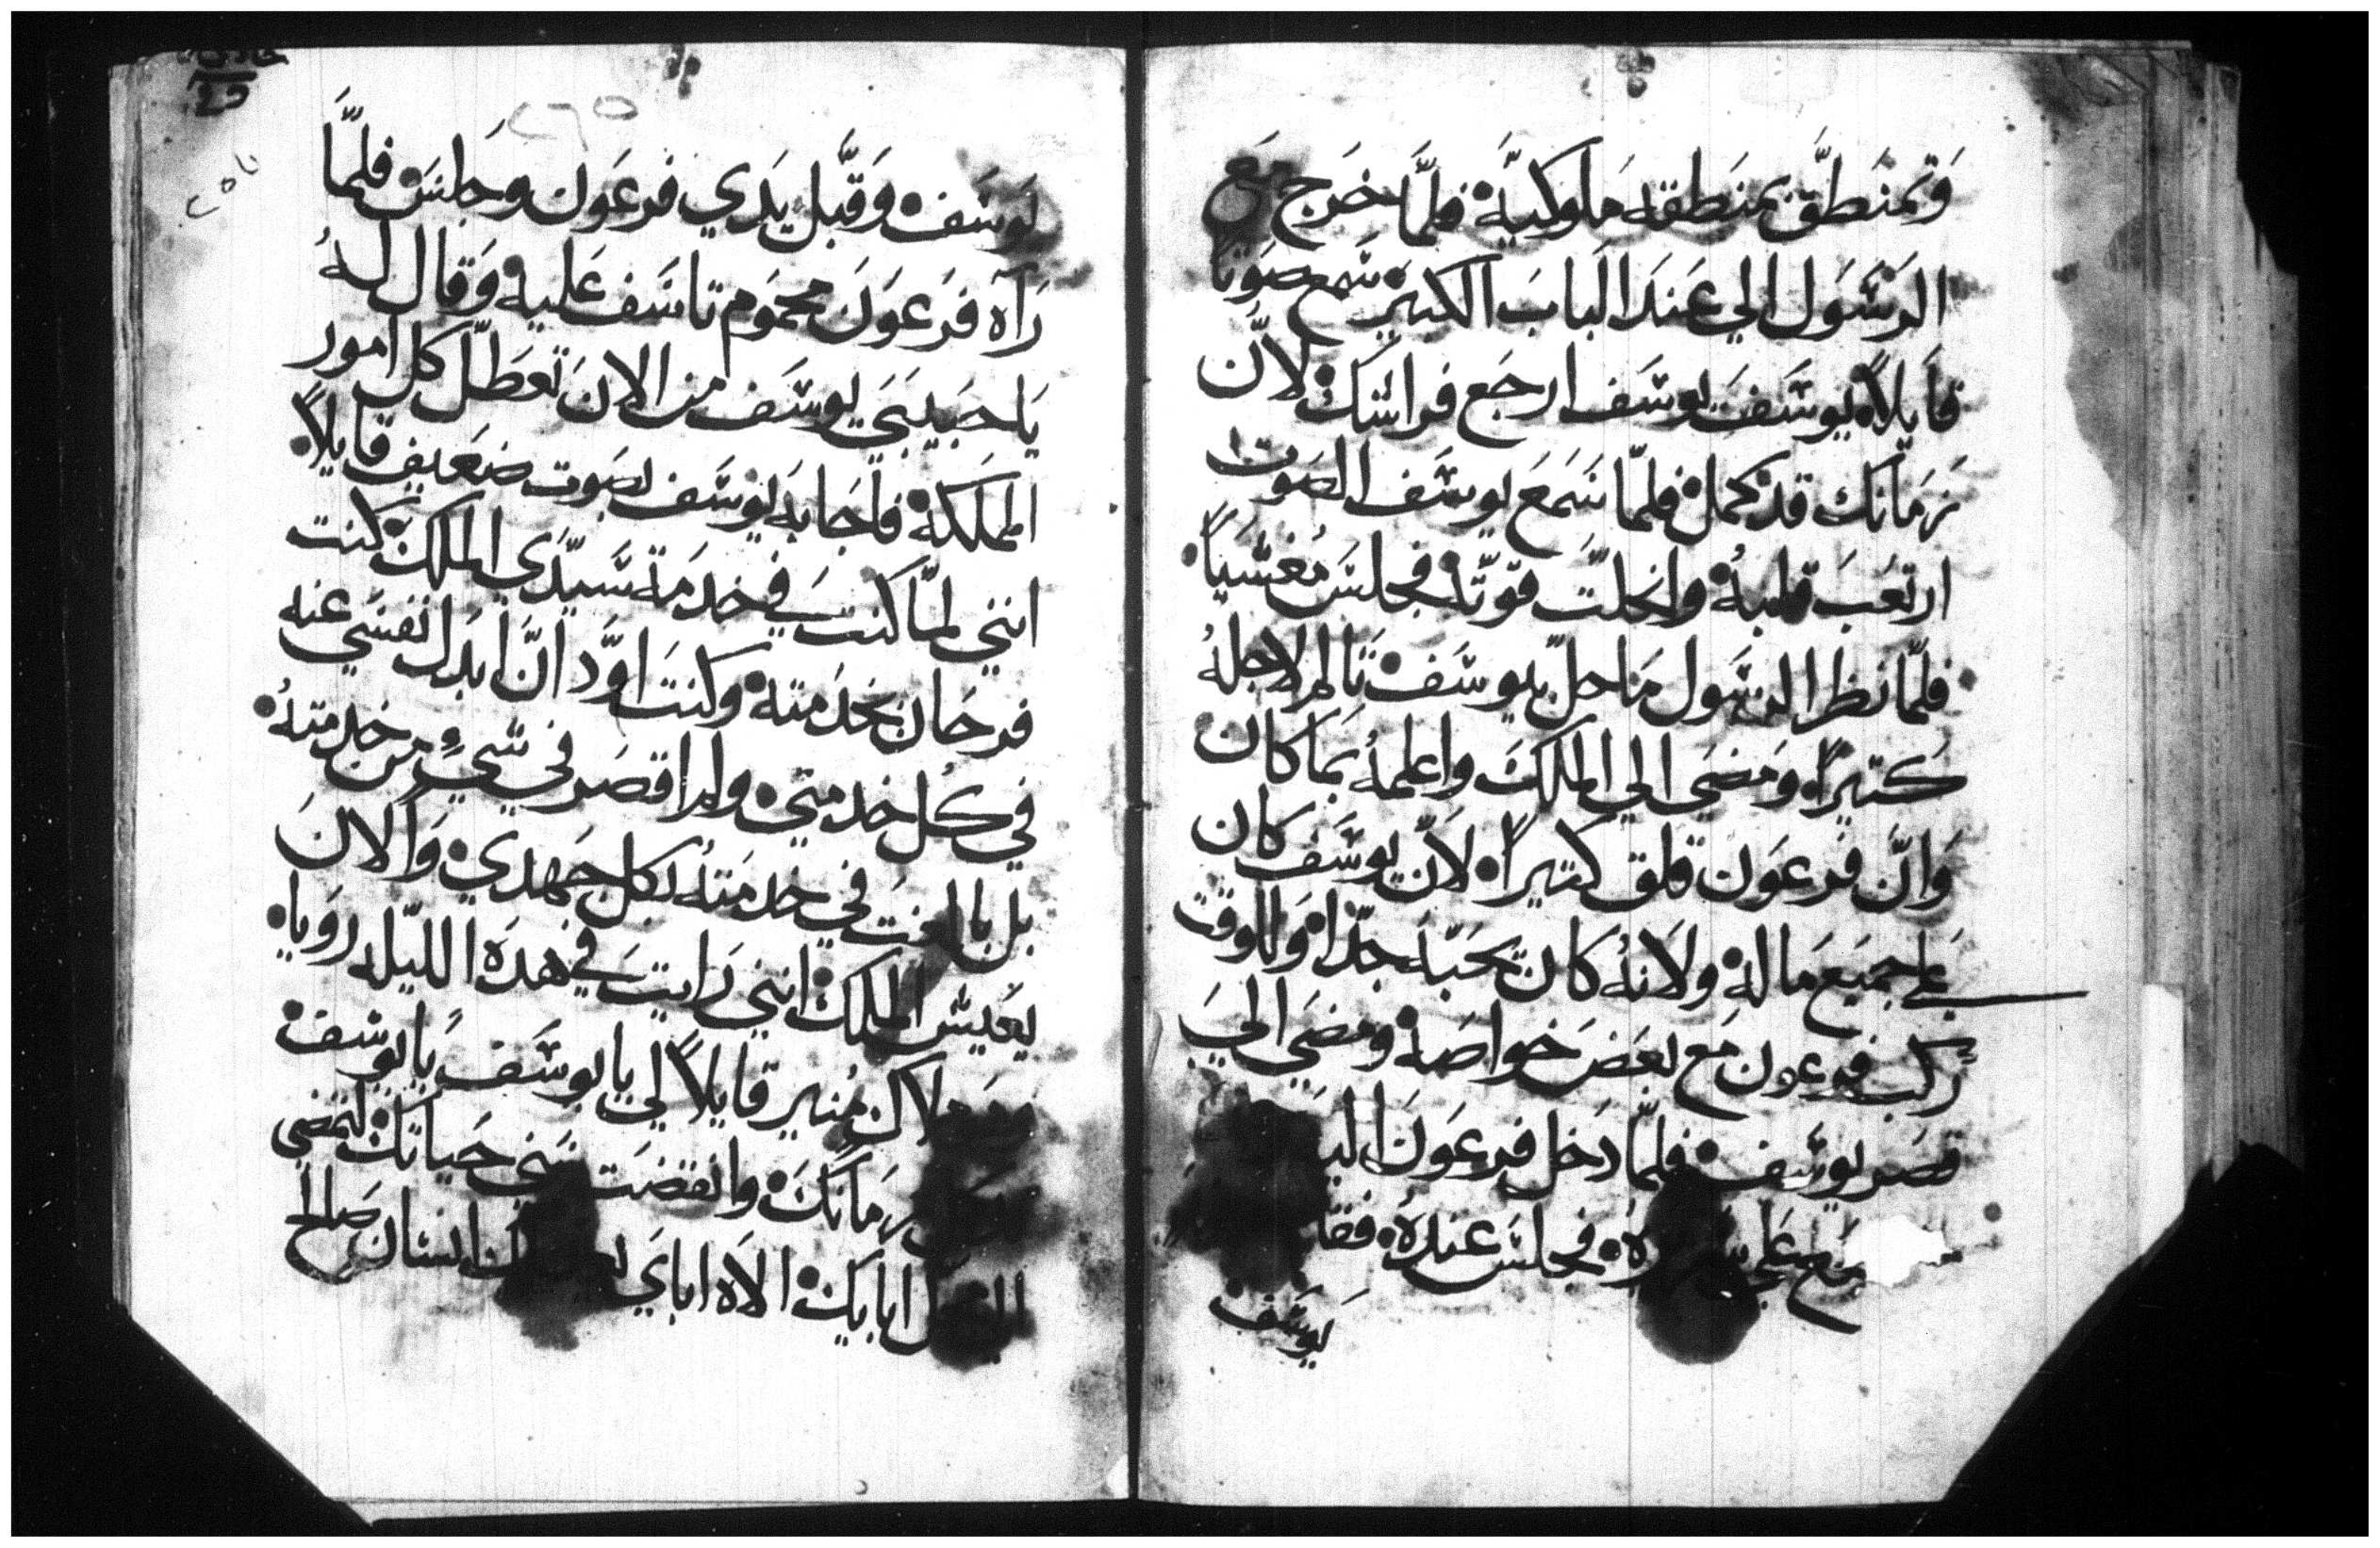 وَتمنَطَّق بمنَطقه مَلوكيَّة فلمَّا خَرج مَع
الرسَّوَل الي عَندَ البابَ الكبيَر سَمع صوَتاً
قايلاً يوسَف يوسَف ارجَع فراشك لانَّ
زمَانك قد كمل فلمّا سَمَعَ يوسَف الصَوت
ارتعَبَ قلبهُ وانحلتّ قوتّه فجلسَ مُغشيَاً
فلمّا نظر الرسَول مَا حلّ بيوسَف تَالم لاجلهُ
كتيراً ومَضَي الي الملكَ واعلمهُ بمَا كان
وَانَّ فرعوَن قلق كتيراً لانّ يوسَف كان
علي جميَع مَاله ولانهُ كان يحَبّه جدّاً وَللوقت
رَكب فرعون مَع بعَض خَواصَه ومضَي اليَ
قصَر يوسَف فلمّا دَخل فرعوَن
فجلسَ عندهُ فقا
يوسَف
يوسَف وَقبَّل يدَي فرعَون وَجلسَ فلمَّا
رَآه فرَعوَن محمَوم تاسَف عَليه وَقال لهُ
يَا حبَيبَي يوسَف من الانَ تعَطلّ كل امور
المملكة فاجَابَه يوسَف بصوت ضعَيف قايلاً
انني لمّا كنت في خدمَة سَيدّي الملك كنت
فرحَان بخدَمته وكنتَ اوَّد انَّ ابَدل نفسَي عنه
في كل خدمتي ولم اقصَر في شيءٍ من خدمتهُ
بل بالغتَ في خدمَتهُ بكل جَهدي وَالانَ
يعَيش الملك انني رَايت في هدَه الليّله رويا
ملاك مُنير قايلاً لي يا يوسَف يَا يوسَف
زمَانكَ وانقضَت سَني حَياتك لتمضي
ابايك الاَه ابايَ انسَان صَالح